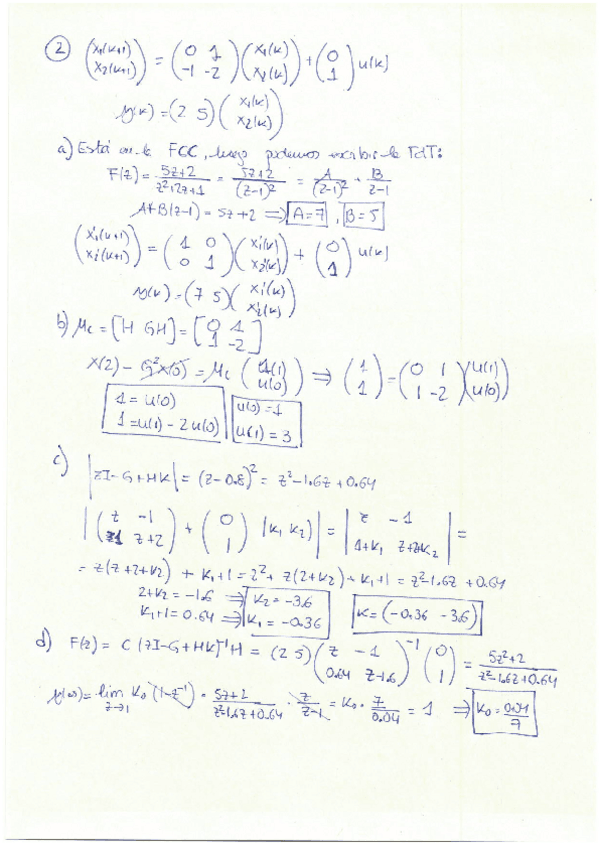 2 (x₁(k+1) x₂(k+1)) = (0 1 -1 -2)(x₁(k) x₂(k)) + (0 1) u(k)
y(k) = (2 5)(x₁(k) x₂(k))
a) Está en la FCC, luego podemos escribir la FdT:
F(z) = 5z+2 / z²+2z+1 = 5z+2 / (z-1)² = A / (z-1)² + B / z-1
A+B(z-1) = 5z+2 ⇒ A=7, B=5
(x₁'(k+1) x₂'(k+1)) = (1 0 0 1)(x₁'(k) x₂'(k)) + (0 1) u(k)
y(k) = (7 5)(x₁'(k) x₂'(k))
b) Mc = [H GH] = [0 1 1 -2]
x(2) - G²x(0) = Mc (u(1) u(0)) ⇒ (1 1) = (0 1 1 -2)(u(1) u(0))
1 = u(0) u(0) = 1
1 = u(1) - 2u(0) u(1) = 3
c)
|zI-G+HK| = (z-0.8)² = z²-1.6z+0.64
|(z -1 1 z+2) + (0 1)(k₁ k₂)| = |z -1 1+k₁ z+2+k₂| =
= z(z+2+k₂) + k₁+1 = z²+z(2+k₂)+k₁+1 = z²-1.6z+0.64
2+k₂ = -1.6 ⇒ k₂ = -3.6
k₁+1 = 0.64 ⇒ k₁ = -0.36 K = (-0.36 -3.6)
d) F(z) = C (zI-G+HK)⁻¹H = (2 5)(z -1 0.64 z-1.6)⁻¹(0 1) = 5z+2 / z²-1.6z+0.64
y(∞) = lim z→1 K₀ (1-z⁻¹) · 5z+2 / z²-1.6z+0.64 · z / z-1 = K₀ · 7 / 0.04 = 1 ⇒ K₀ = 0.04 / 7